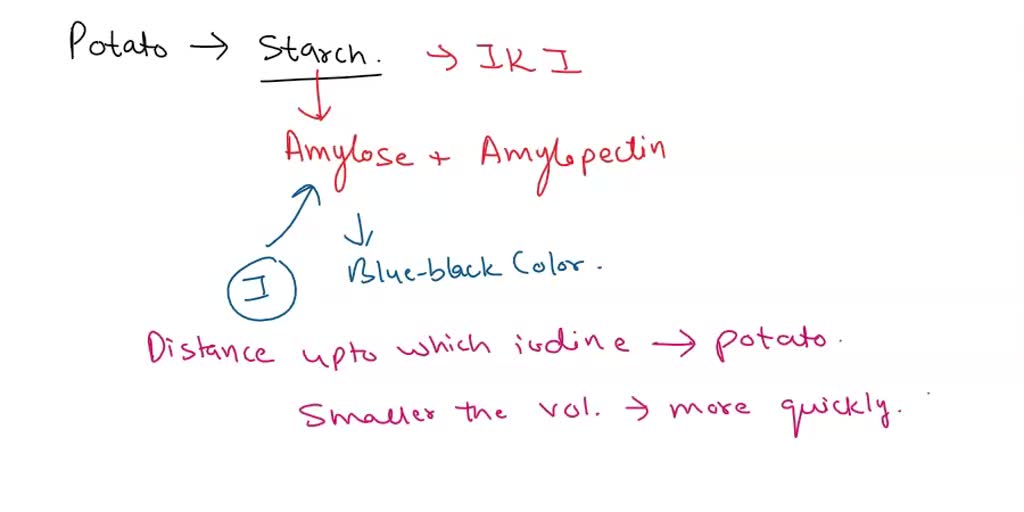 Potato → Starch. → IKI
Amylose + Amylopectin
I
Blue-black Color.
Distance upto which iodine → potato.
Smaller the vol. → more quickly.